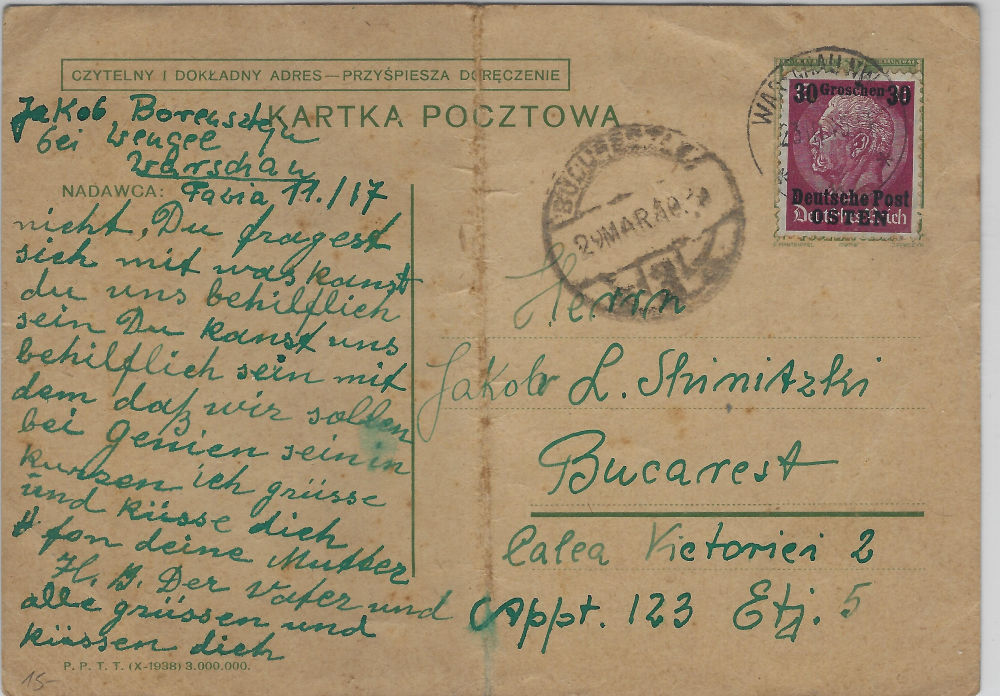 CZYTELNY I DOKŁADNY ADRES—PRZYŚPIESZA DORĘCZENIE
KARTKA POCZTOWA
Jakob Borensztejn
bei Wengel
Warschau
NADAWCA: Pawia, 11./17
nicht, Du fragest
sich mit was kanst
du uns behilflich
sein Du kanst uns
behilflich sein mit
dem daß wir sollen
bei Genien sein in
kurzen ich grüsse
und küsse dich
fon deine Mutter
H. B. Der Vater und
alle grüssen und
küssen dich
P. P. T. T. (X-1938) 3.000.000.
15-
WARSCHAU
30 Groschen 30
Deutsche Post
OSTEN
Deutsches Reich
29 MAR. 40
Herrn
Jakob L. Skinitzki
Bucarest
Calea Victoriei 2
Appt. 123 Etj. 5